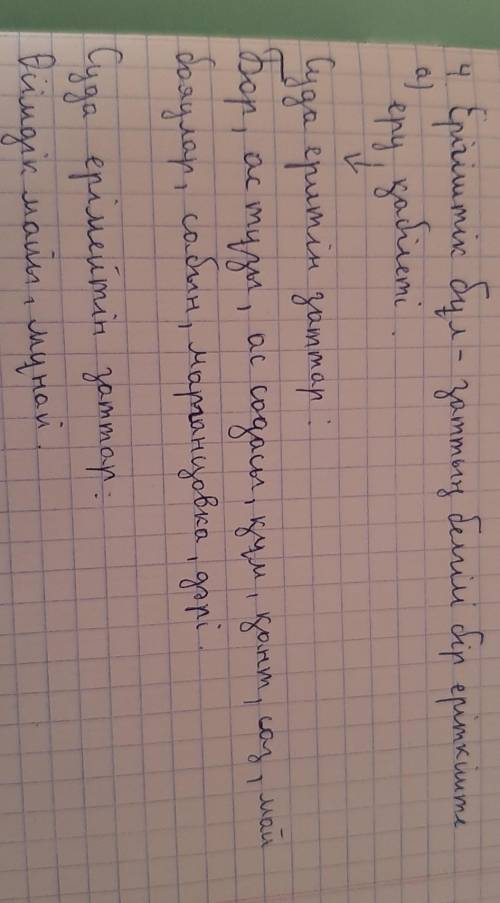 4 Ерігіштік бұл - заттың белгілі бір еріткіште
а) еру қабілеті.
Суда еритін заттар:
Бор, ас тұзы, ас содасы, құм, қант, саз, май
бояулар, сабын, марганцовка, дәрі.
Суда ерімейтін заттар:
Өсімдік майы, мұнай.